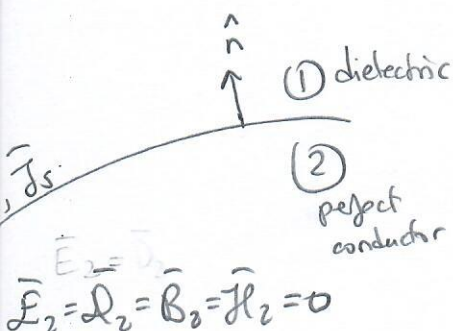 n̂
① dielectric
, J̄s
②
perfect
conductor
Ē₂ =
Ē₂ = D̄₂ = B̄₂ = H̄₂ = 0